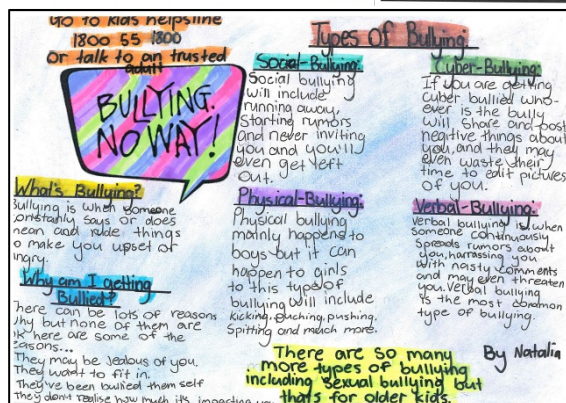 Go to kids helpsline
1800 55 1800
Or talk to an trusted
adult
BULLYING.
NO WAY!
What's Bullying?
Bullying is when someone
says or does
mean and rude things
to make you upset or
angry.
Why am I getting
Bullied?
There can be lots of reasons
why but none of them are
ok here are some of the
reasons...
They may be jealous of you.
They want to fit in.
They've been bullied them self
They don't realise how much it's impacting you
Types of Bullying:
Social-Bullying:
Social bullying
will include
running away,
Starting rumors
and never inviting
you and you will
even get left
out.
Physical-Bullying:
Physical bullying
mainly happens to
boys but it can
happen to girls
to this type of
bullying will include
kicking, puching, pushing.
Spitting and much more.
Cyber-Bullying:
If you are getting
cyber bullied who-
ever is the bully
will share and post
negitive things about
you, and they may
even waste their
time to edit pictures
of you.
Verbal-Bullying:
Verbal bullying is when
someone continuously
Spreads rumors about
you, harrassing you
with nasty comments
and may even threaten
you. Verbal bullying
is the most common
type of bullying.
There are so many
more types of bullying
including sexual bullying but
thats for older kids.
By Natalia